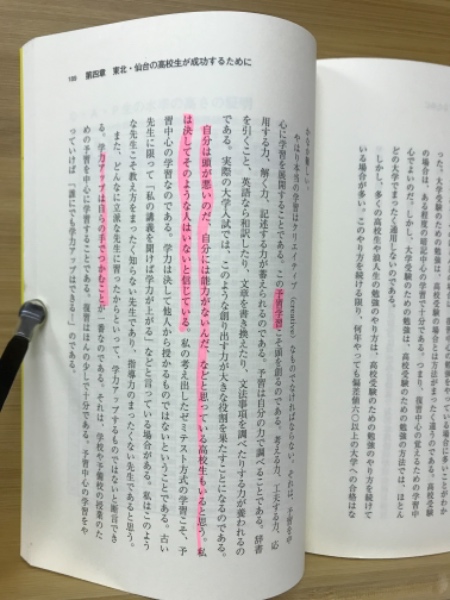 188 第四章 東北・仙台の高校生が成功するために
やはり本当の学習はクリエイティブ(creative)なものでなければならない。それは、予習を中
心に学習を展開することである。この予習学習こそ頭を創るのである。考える力、工夫する力、応
用する力、解く力、記述する力が蓄えられるのである。予習は自分の力で調べることである。辞書
を引くこと、英語なら和訳したり、文章を書き換えたり、文法事項を調べたりする力が養われるの
である。実際の大学入試では、このような創り出す力が大きな役割を果たすことになるのである。
自分は頭が悪いのだ、自分には能力がないんだ、などと思っている高校生もいると思う。私
は決してそのような人はいないと信じている。私の考え出したゼミテスト方式の学習こそ、予
習中心の学習なのである。学力は決して他人から授かるものではないということである。古い
先生に限って「私の講義を聞けば学力が上がる」などと言っている場合がある。私はこのよう
な先生こそ教え方をまったく知らない先生であり、指導力のまったくない先生であると思う。
また、どんなに立派な先生に習ったからといって、学力アップするものではないと断言でき
る。学力アップは自らの手でつかむことが一番なのである。それは、学校や予備校の授業のた
めの予習を中心に学習することである。復習はほんの少しで十分である。予習中心の学習をや
っていけば「誰にでも学力アップはできる!」のである。
った。大学受験のための勉強は、高校受験の場合とは方法がまったく違うのである。高校受験
の場合は、ある程度の暗記中心の学習で十分である。つまり、復習中心の覚えるための学習中
心でよいのだ。しかし、大学受験のための勉強は、高校受験のための勉強の方法では、ほとん
どの大学でまったく通用しないのである。
しかし、多くの高校生や浪人生の勉強のやり方は、高校受験のための勉強のやり方を続けて
いる場合が多い。このやり方を続ける限り、何年やっても偏差値六〇以上の大学への合格はな